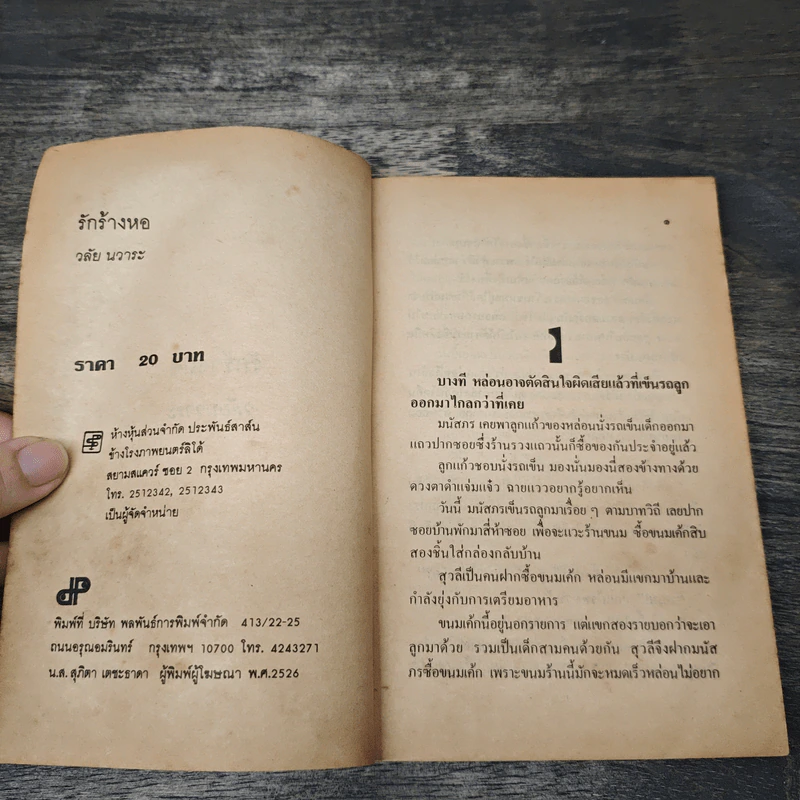 รักร้างหอ
วลัย นวาระ
ราคา 20 บาท
ห้างหุ้นส่วนจำกัด ประพันธ์สาส์น
ข้างโรงภาพยนตร์ลิโด้
สยามสแควร์ ซอย 2 กรุงเทพมหานคร
โทร. 2512342, 2512343
เป็นผู้จัดจำหน่าย
พิมพ์ที่ บริษัท พลพันธ์การพิมพ์จำกัด 413/22-25
ถนนอรุณอมรินทร์ กรุงเทพฯ 10700 โทร. 4243271
น.ส. สุภิตา เตชะธาดา ผู้พิมพ์ผู้โฆษณา พ.ศ.2526
1
บางที หล่อนอาจตัดสินใจผิดเสียแล้วที่เข็นรถลูก
ออกมาไกลกว่าที่เคย
มนัสภร เคยพาลูกแก้วของหล่อนนั่งรถเข็นเด็กออกมา
แถวปากซอยซึ่งร้านรวงแถวนั้นก็ซื้อของกันประจำอยู่แล้ว
ลูกแก้วชอบนั่งรถเข็น มองนั่นมองนี่สองข้างทางด้วย
ดวงตาดำแจ่มแจ๋ว ฉายแววอยากรู้อยากเห็น
วันนี้ มนัสภรเข็นรถลูกมาเรื่อย ๆ ตามบาทวิถี เลยปาก
ซอยบ้านพักมาสี่ห้าซอย เพื่อจะแวะร้านขนม ซื้อขนมเค้กสิบ
สองชิ้นใส่กล่องกลับบ้าน
สุวลีเป็นคนฝากซื้อขนมเค้ก หล่อนมีแขกมาบ้านและ
กำลังยุ่งกับการเตรียมอาหาร
ขนมเค้กนี้อยู่นอกรายการ แต่แขกสองรายบอกว่าจะเอา
ลูกมาด้วย รวมเป็นเด็กสามคนด้วยกัน สุวลีจึงฝากมนัส
ภรซื้อขนมเค้ก เพราะขนมร้านนี้มักจะหมดเร็วหล่อนไม่อยาก